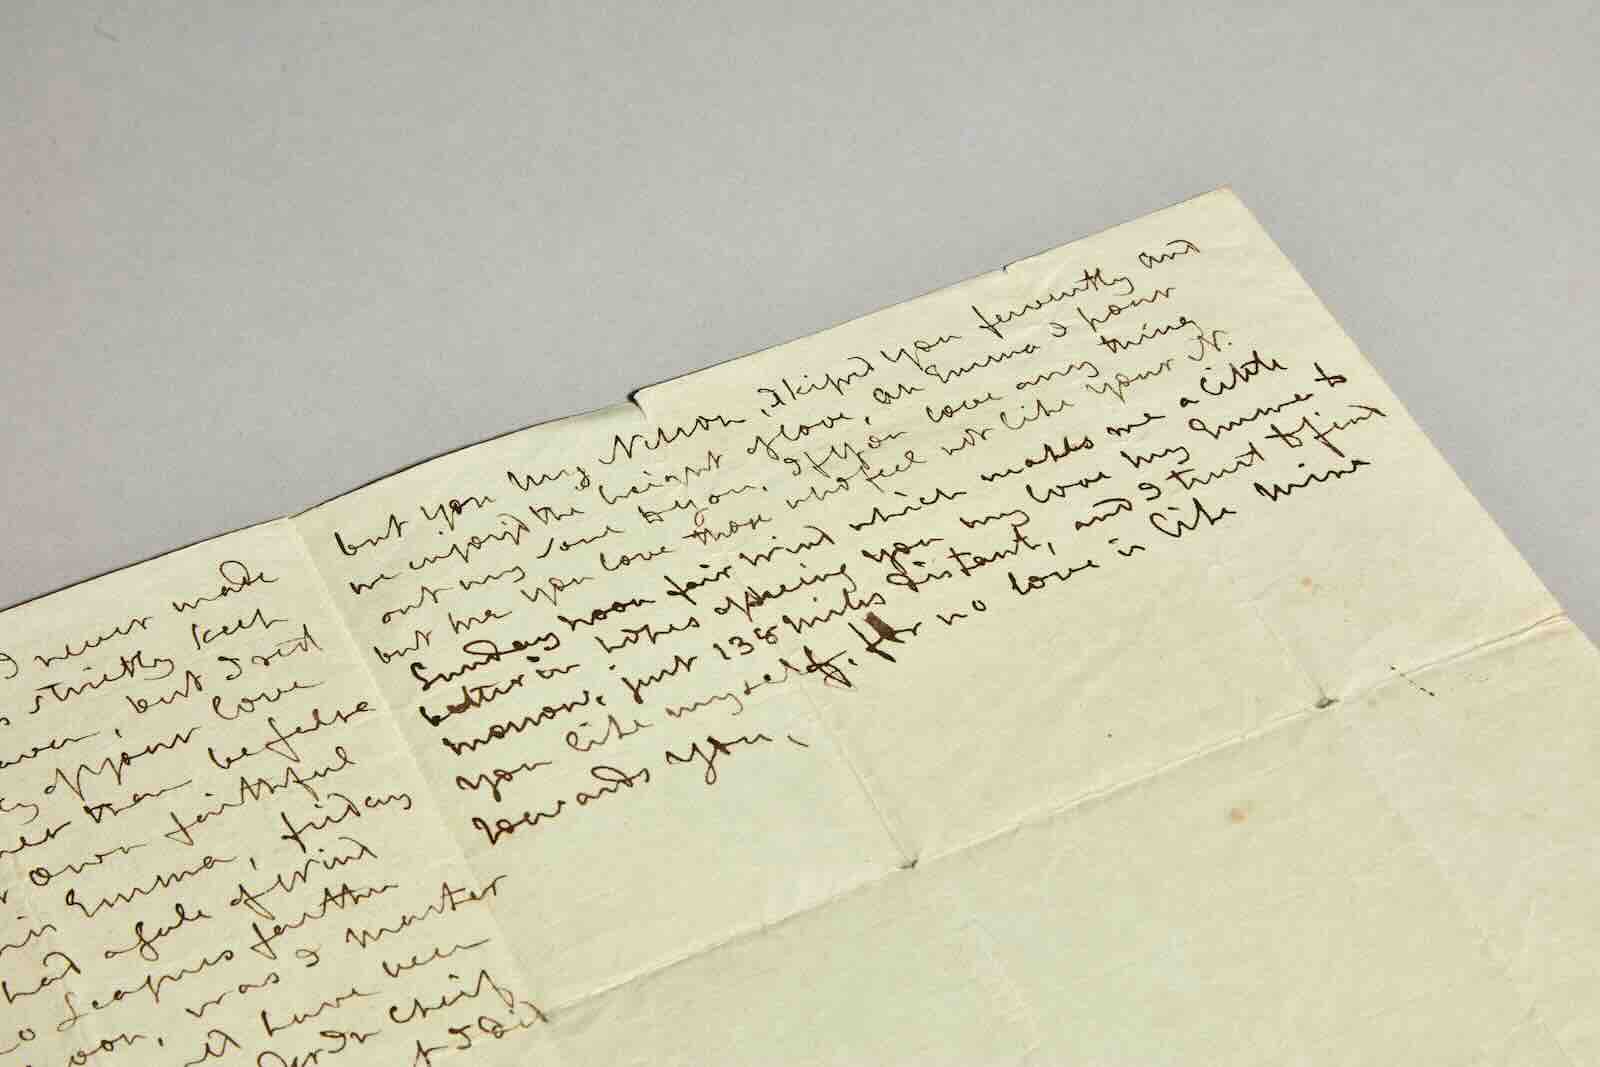 I never made
strictly keep
but I
of your love
than be false
own faithful
Emma, friday
had a gale of Wind
Leagues farther
was I Master
it have been
in Chief
I did
but you my Nelson, I kissed you fervently and
we enjoy'd the height of love, ah Emma I pour
out my soul to you, If you love any thing
but me you love those who feel not like your N.
Sunday noon fair Wind which makes me a little
better in hopes of seeing you my love my Emma to
morrow, just 138 miles distant, and I trust to find
you like myself, for no love is like mine
towards you,